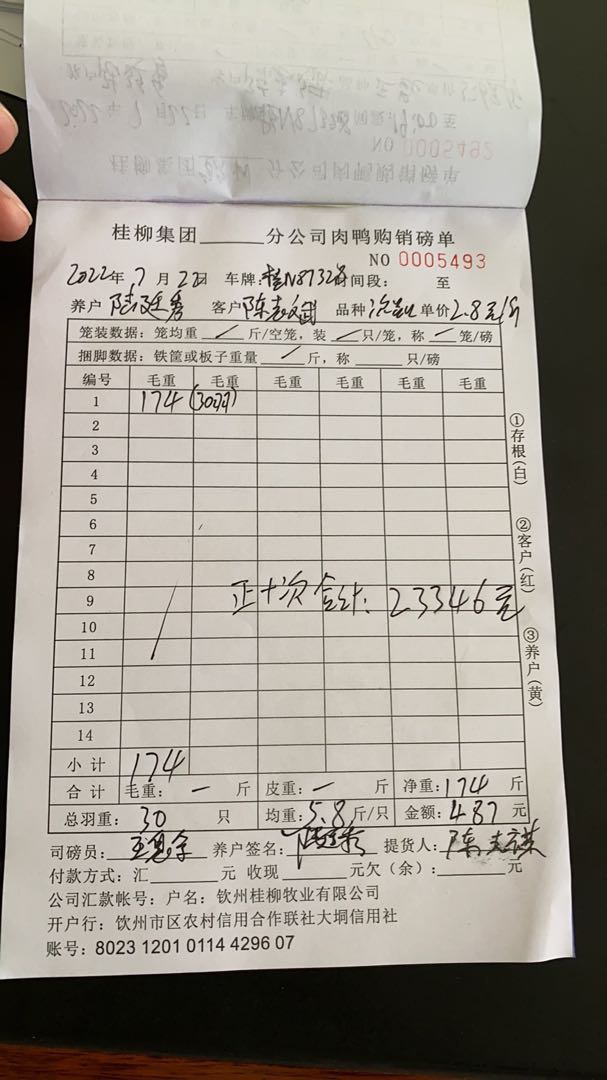 NO 0005492
桂柳集团______分公司肉鸭购销磅单
NO 0005493
2022年 7 月 22日 车牌:桂N8732 时间段: 至
养户 陆廷秀 客户 陈 品种 次 单价 2.8元/斤
笼装数据: 笼均重 / 斤/空笼, 装 / 只/笼, 称 / 笼/磅
捆脚数据: 铁筐或板子重量 / 斤, 称______只/磅
编号 毛重 毛重 毛重 毛重 毛重 毛重
1 174 (30羽)
2
3
4
5
6
7
8
正+次 合计: 23346元
9
10
11
12
13
14
小计 174
合计 毛重: — 斤 皮重: — 斤 净重: 174 斤
总羽重: 30 只 均重: 5.8 斤/只 金额: 487 元
司磅员: 养户签名: 提货人: 陈
付款方式: 汇______元 收现______元欠(余):______元
公司汇款帐号: 户名: 钦州桂柳牧业有限公司
开户行: 钦州市区农村信用合作联社大垌信用社
账号: 8023 1201 0114 4296 07
①存根(白)
②客户(红)
③养户(黄)